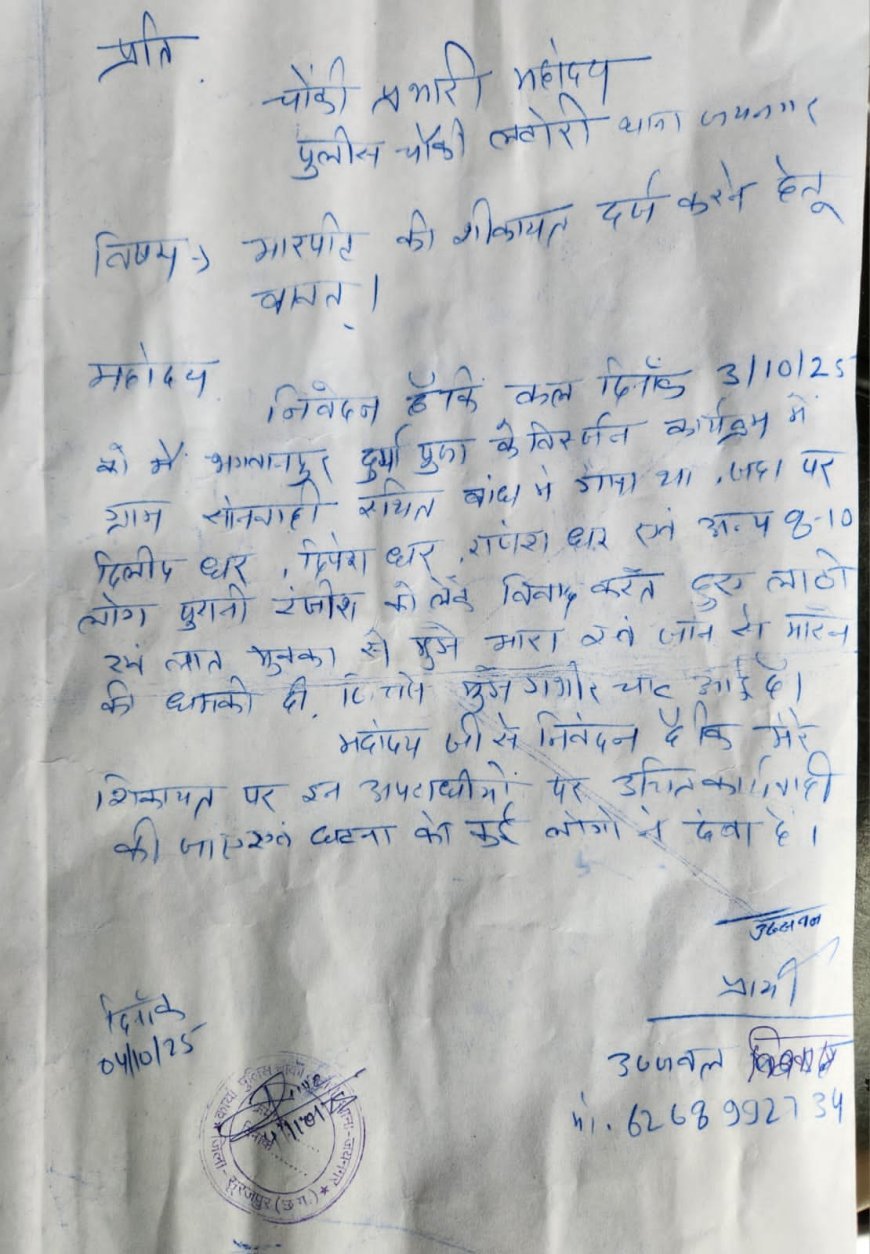 प्रति
चौकी प्रभारी महोदय
पुलीस चौकी लटोरी थाना जयनगर
विषय → मारपीट की शीकायत दर्ज करने हेतू
बावत् ।
महोदय
निवेदन हैं कि कल दिनाँक 3/10/25
को मैं भगवानपुर दुर्गा पुजा के विसर्जन कार्यक्रम में
ग्राम सोनवाही स्थित बांध मे गाया था, जहा पर
दिलीप धर, दिपेश धर, गणेश धर एवं अन्य 8-10
लोग पुरानी रंजीश को लेके विवाद करते हुए लाठी
एवं लात मुक्का से मुझे मारा एवं जान से मारने
की धमकी दी, जिससे मुझे गंभीर चोट आई है।
महोदय जी से निवेदन हैं कि मेरे
शिकायत पर इन अपराधीयों पर उचित कार्यवाही
की जाए एवं घटना को कई लोगो ने देखा है।
उज्जवल
प्रार्थी
दिनाँक
04/10/25
उज्जवल
मो. 6268992734
कार्या. पुलिस चौकी थाना-जयनगर
जिला-सूरजपुर (छ.ग.)